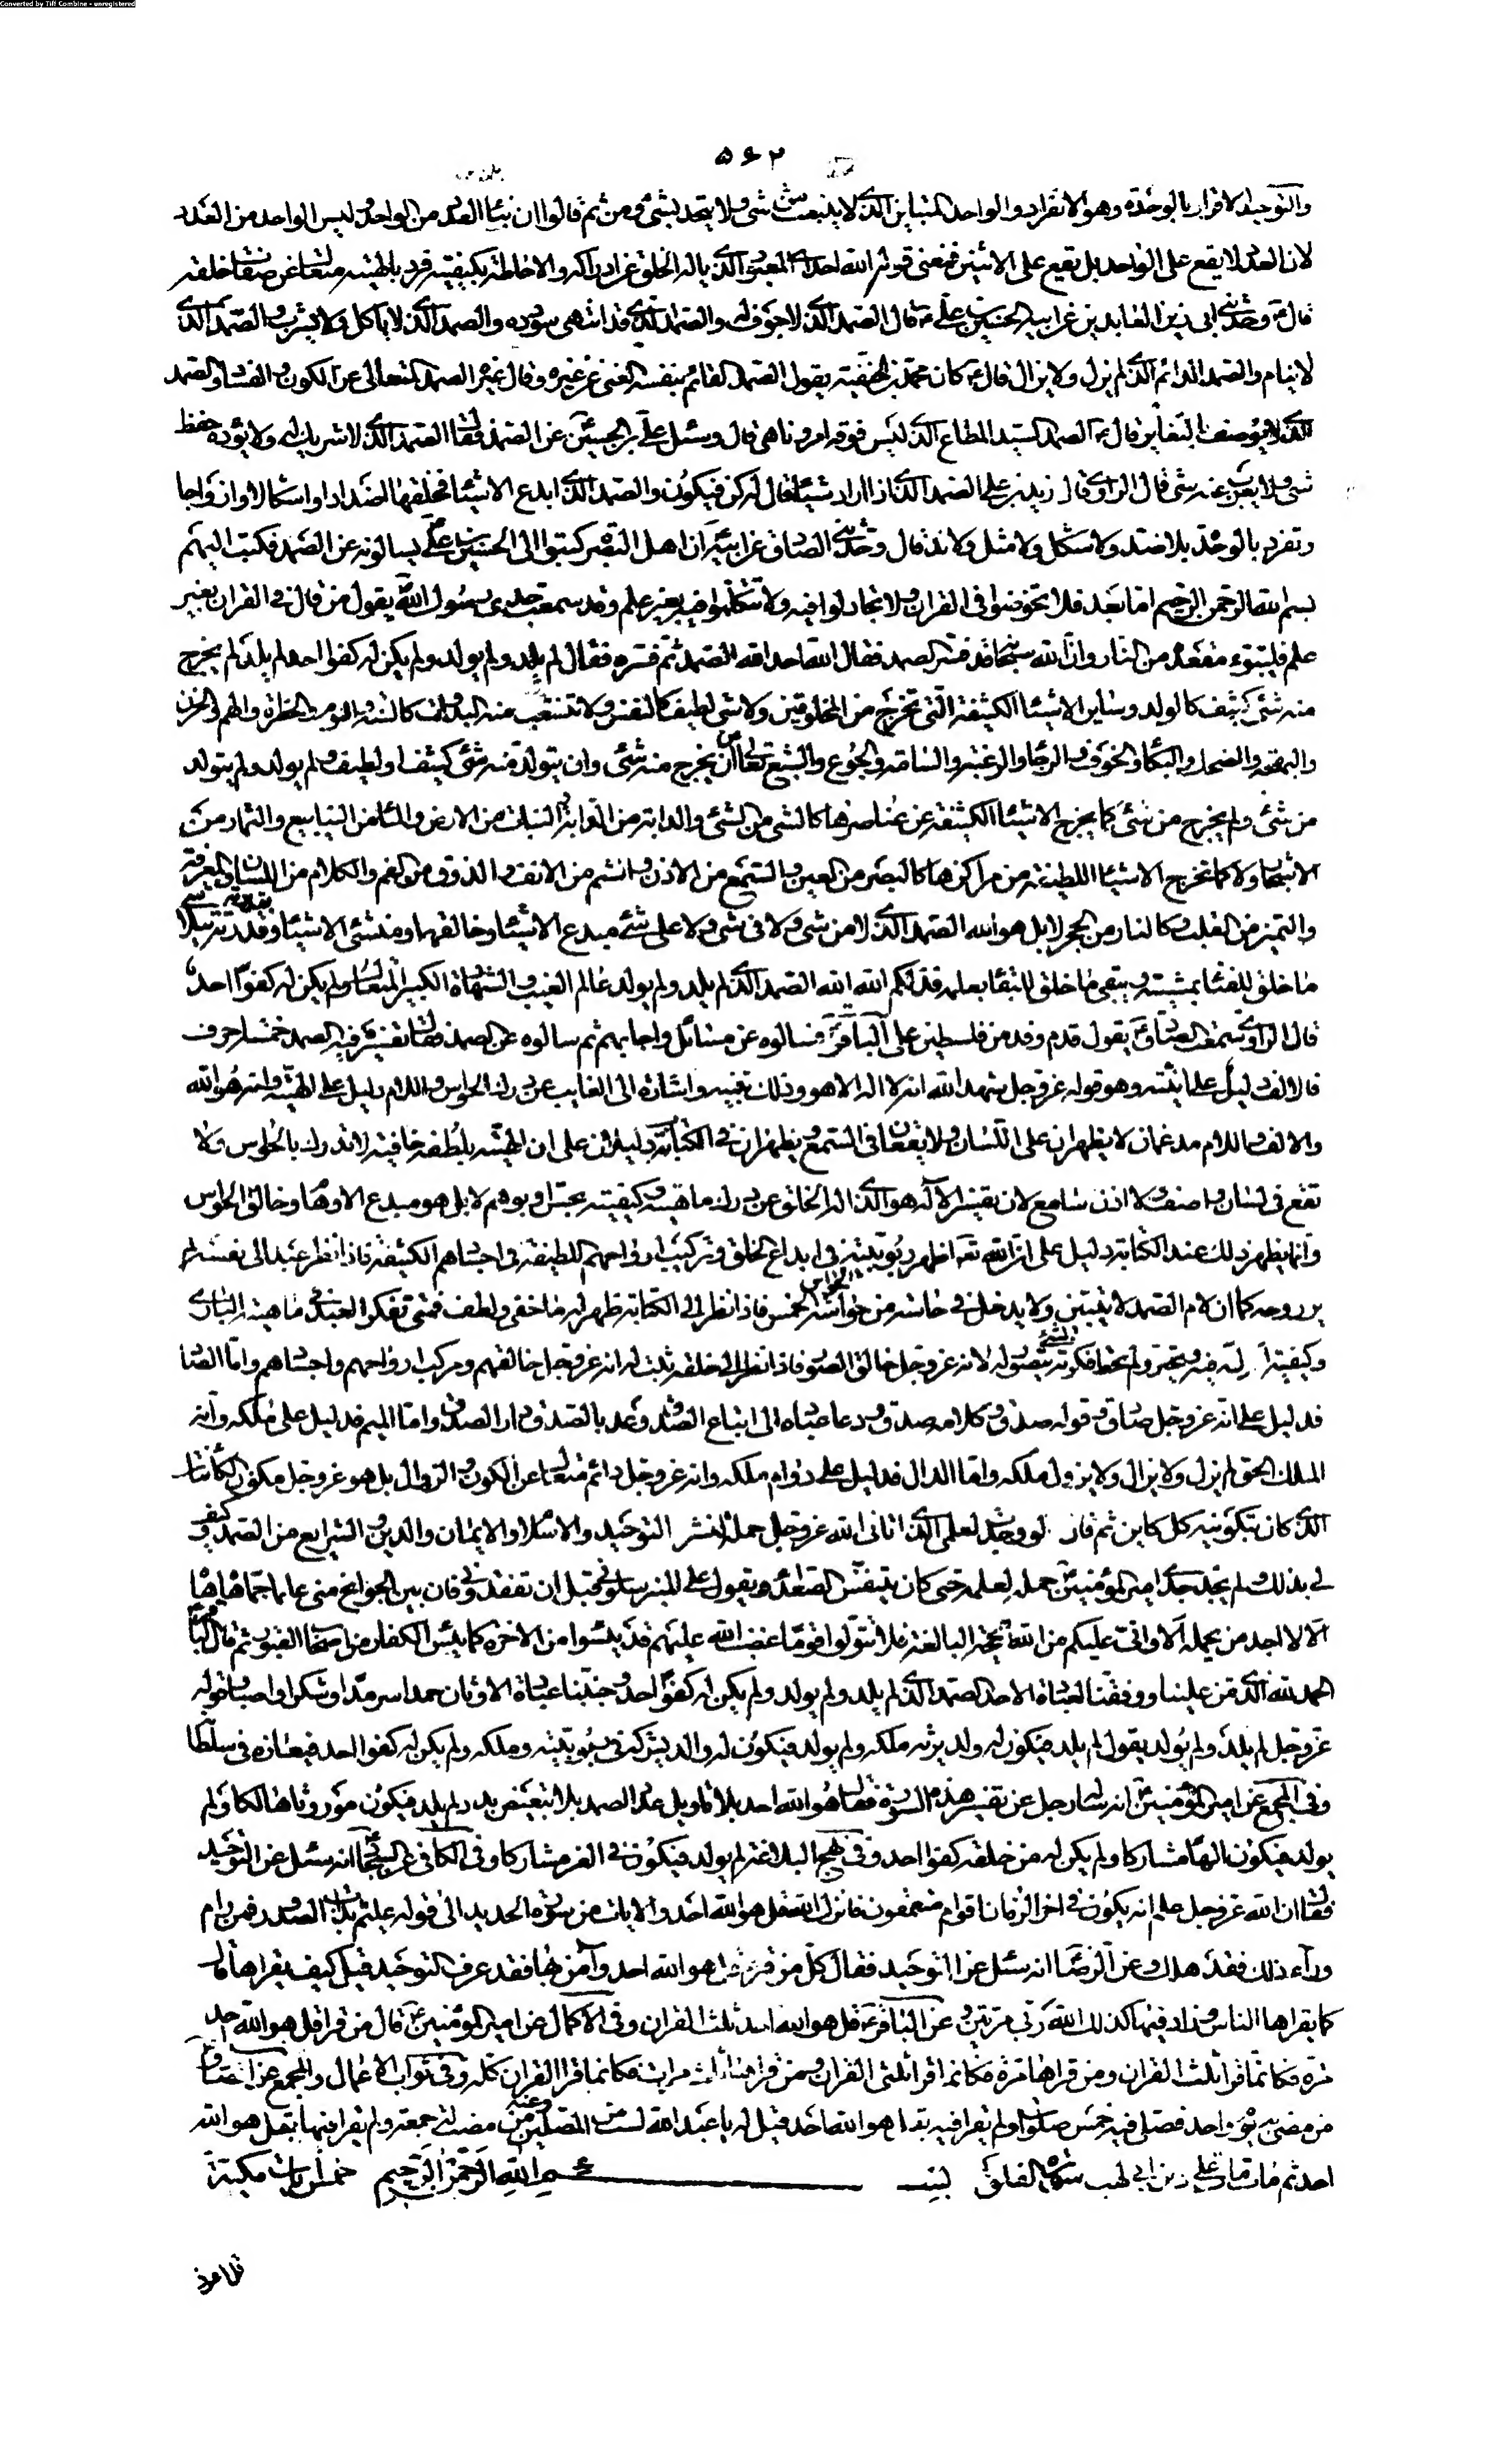 Converted by Tiff Combine - unregistered
۵۶۲
والتوحيد الاقرار بالوحدة وهو الانفراد والواحد المتباين الذي لا ينبعث من شئ ولا يتحد بشئ ومن ثم قالوا ان بناء العدد من الواحد وليس الواحد من العدد
لان العدد لا يقع على الواحد بل يقع على الاثنين فمعنى قوله الله احد اي المعبود الذي ياله الخلق عن ادراكه والاحاطة بكيفيته فرد بالهيته متعال عن صفات خلقه
قال ع وحدثني ابي زين العابدين عن ابيه الحسين بن علي ع قال الصمد الذي لا جوف له والصمد الذي قد انتهى سودده والصمد الذي لا ياكل ولا يشرب والصمد الذي
لا ينام والصمد الدائم الذي لم يزل ولا يزال قال ع كان محمد بن الحنفية يقول الصمد القائم بنفسه الغني عن غيره وقال غيره الصمد المتعالي عن الكون والفساد والصمد
الذي لا يوصف بالتغاير قال ع الصمد السيد المطاع الذي ليس فوقه امر وناهي قال وسئل علي بن الحسين عن الصمد فقال الصمد الذي لا شريك له ولا يؤده حفظ
شئ ولا يعزب عنه شئ قال الراوي قال زيد بن علي الصمد الذي اذا اراد شيئا قال له كن فيكون والصمد الذي ابدع الاشياء فخلقها اضدادا واشكالا وازواجا
وتفرد بالوحدة بلا ضد ولا شكل ولا مثل ولا ند قال وحدثني الصادق عن ابيه ان اهل البصرة كتبوا الى الحسين بن علي يسالونه عن الصمد فكتب اليهم
بسم الله الرحمن الرحيم اما بعد فلا تخوضوا في القران ولا تجادلوا فيه ولا تتكلموا فيه بغير علم وقد سمعت جدي رسول الله يقول من قال في القران بغير
علم فليتبوء مقعده من النار وان الله سبحانه قد فسر الصمد فقال الله احد الله الصمد ثم فسره فقال لم يلد ولم يولد ولم يكن له كفوا احد لم يلد لم يخرج
منه شئ كثيف كالولد وسائر الاشياء الكثيفة التي تخرج من المخلوقين ولا شئ لطيف كالنفس ولا تنشعب منه البدوات كالسنة والنوم والخطرة والهم والحزن
والبهجة والضحك والبكاء والخوف والرجاء والرغبة والسامة والجوع والشبع تعالى ان يخرج منه شئ وان يتولد منه شئ كثيف او لطيف ولم يولد ولم يتولد
من شئ ولم يخرج من شئ كما يخرج الاشياء الكثيفة عن عناصرها كالشئ من الشئ والدابة من الدابة والنبات من الارض والماء من الينابيع والثمار من
الاشجار ولا كما تخرج الاشياء اللطيفة من مراكزها كالبصر من العين والسمع من الاذن والشم من الانف والذوق من الفم والكلام من اللسان والمعرفة
والتميز من القلب وكالنار من الحجر لا بل هو الله الصمد الذي لا من شئ ولا في شئ ولا على شئ مبدع الاشياء وخالقها ومنشئ الاشياء بقدرته يتلاشى
ما خلق للفناء بمشيته ويبقى ما خلق للبقاء بعلمه فذلكم الله الله الصمد الذي لم يلد ولم يولد عالم الغيب والشهادة الكبير المتعال ولم يكن له كفوا احد
قال الراوي سمعت الصادق ع يقول قدم وفد من فلسطين على الباقر ع فسالوه عن مسائل واجابهم ثم سالوه عن الصمد فقال تفسيره فيه الصمد خمسة احرف
فالالف دليل على انيته وهو قوله عز وجل شهد الله انه لا اله الا هو وذلك تنبيه واشارة الى الغايب عن درك الحواس واللام دليل على الهيته وانه هو الله
والالف واللام مدغمان لا يظهران على اللسان ولا يقعان في السمع ويظهران في الكتابة دليلان على ان الهيته بلطفه خافية لا تدرك بالحواس ولا
تقع في لسان واصف ولا اذن سامع لان تفسير الاله هو الذي اله الخلق عن درك ماهيته وكيفيته بحس او بوهم لا بل هو مبدع الاوهام وخالق الحواس
وانما يظهر ذلك عند الكتابة دليل على ان الله تع اظهر ربوبيته في ابداع الخلق وتركيب ارواحهم اللطيفة في اجسادهم الكثيفة فاذا نظر عبد الى نفسه لم
ير روحه كما ان لام الصمد لا يتبين ولا يدخل في حاسة من حواسه الخمس فاذا نظر الى الكتابة ظهر له ما خفي ولطف فمتى تفكر العبد في ماهية الباري
وكيفيته اله فيه وتحير ولم يحط فكرته بشئ يتصور له لانه عز وجل خالق الصور فاذا نظر الى خلقه ثبت له انه عز وجل خالقهم ومركب ارواحهم واجسادهم واما الصاد
فدليل على انه عز وجل صادق وقوله صدق وكلامه صدق ودعا عباده الى اتباع الصدق ووعد بالصدق دار الصدق واما الميم فدليل على ملكه وانه
الملك الحق لم يزل ولا يزال ولا يزول ملكه واما الدال فدليل على دوام ملكه وانه عز وجل دائم متعال عن الكون والزوال بل هو عز وجل مكون الكائنات
الذي كان بتكوينه كل كاين ثم قال لو وجدت لعلمي الذي اتاني الله عز وجل حملة لنشرت التوحيد والاسلام والايمان والدين والشرايع من الصمد وكيف
لي بذلك ولم يجد جدي امير المؤمنين حملة لعلمه حتى كان يتنفس الصعداء ويقول على المنبر سلوني قبل ان تفقدوني فان بين الجوانح مني علما جما هاه هاه
الا لا اجد من يحمله الا واني عليكم من الله الحجة البالغة فلا تتولوا قوما غضب الله عليهم قد يئسوا من الاخرة كما يئس الكفار من اصحاب القبور ثم قال الباقر ع
الحمد لله الذي من علينا ووفقنا لعبادة الاحد الصمد الذي لم يلد ولم يولد ولم يكن له كفوا احد وجنبنا عبادة الاوثان حمدا سرمدا وشكرا واصبا وقوله
عز وجل لم يلد ولم يولد يقول لم يلد فيكون له ولد يرثه ملكه ولم يولد فيكون له والد يشركه في ربوبيته وملكه ولم يكن له كفوا احد فيعازه في سلطانه
وفي المجمع عن امير المؤمنين انه سئله رجل عن تفسير هذه السورة فقال هو الله احد بلا تاويل عدد الصمد بلا تبعيض بدد لم يلد فيكون موروثا هالكا ولم
يولد فيكون الها مشاركا ولم يكن له من خلقه كفوا احد وفي نهج البلاغة لم يولد فيكون في العز مشاركا وفي الكافي عن السجاد انه سئل عن التوحيد
فقال ان الله عز وجل علم انه يكون في اخر الزمان اقوام متعمقون فانزل الله قل هو الله احد والايات من سورة الحديد الى قوله عليم بذات الصدور فمن رام
وراء ذلك فقد هلك وعن الرضا انه سئل عن التوحيد فقال كل من قرء قل هو الله احد وآمن بها فقد عرف التوحيد قيل كيف يقراها قال
كما يقراها الناس وزاد فيها كذلك الله ربي مرتين وعن الباقر ع قل هو الله احد ثلث القران وفي الاكمال عن امير المؤمنين ع قال من قرا قل هو الله احد
مرة فكانما قرا ثلث القران ومن قراها مرتين فكانما قرا ثلثي القران ومن قراها ثلث مرات فكانما قرا القران كله وفي ثواب الاعمال والمجمع عن الصادق
من مضى به يوم واحد فصلى فيه خمس صلوات ولم يقرا فيه بقل هو الله احد قيل له يا عبد الله لست من المصلين وعنه من مضت له جمعة ولم يقرا فيها بقل هو الله
احد ثم مات مات على دين ابي لهب سورة الفلق بسم الله الرحمن الرحيم خمس ايات مكية